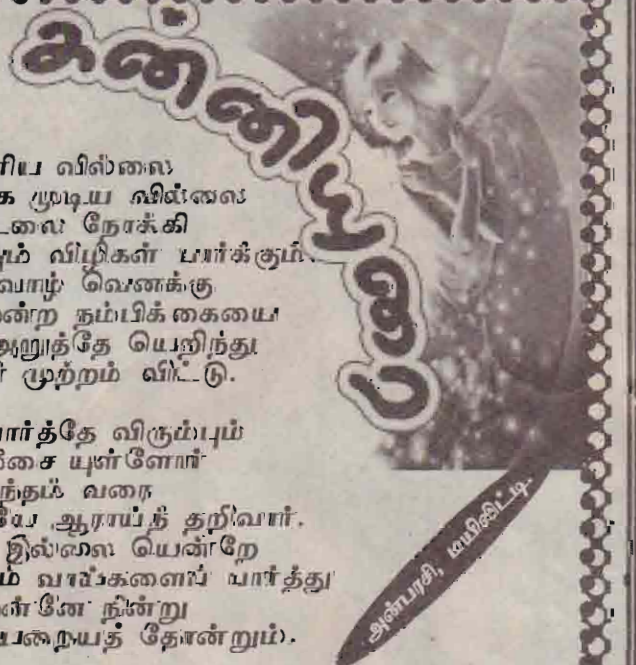 கன்னியிவள்
ரிய வில்லை
க முடிய வில்லை
டலை நோக்கி
ம் விழிகள் பார்க்கும்.
வாழ் வெனக்கு
ன்ற நம்பிக்கையை
அறுத்தே யெறிந்து
ர் முற்றம் விட்டு.
பார்த்தே விரும்பும்
சை யுள்ளோர்
ந்தம் வரை
யே ஆராய்ந் தறிவார்.
இல்லை யென்றே
ம் பார்த்து
ன்னே நின்று
பறையத் தோன்றும்.
அன்பரசி, மயிலிட்டி-